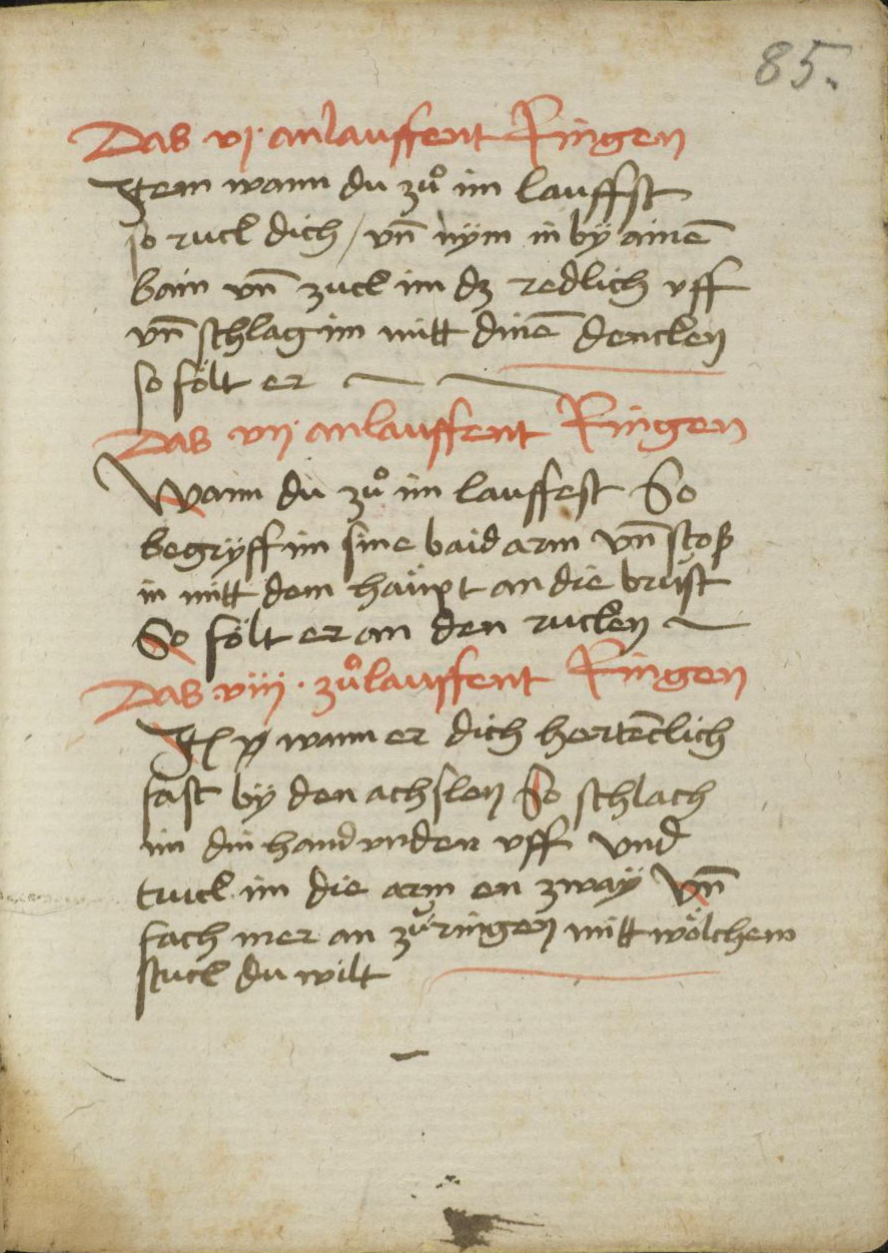 85.
Das vj. anlauffent Ringen
Item wann du zuͦ im lauffst
so ruck dich / vn̄ nym in by ainē
bain vn̄ zuck im dz redlich vff
vn̄ schlag im mitt dinē dencken
so fölt er
Das vij anlauffent Ringen
Wann du zuͦ im lauffest So
begryff im sine baid arm vn̄ stoß
in mitt dem haüpt an die brüst
So fölt er an den rucken
Das viij. zuͦlauffent Ringen
wann er dich hertēclich
fast by den achslen So schlach
im din hand vnden vff vnd
truck im die arm en zway vn̄
fach mer an zü ringen mitt wölchem
stuck du wilt